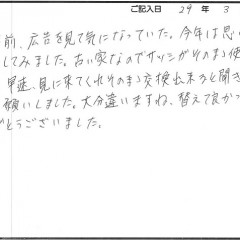 ご記入日 29 年 3
前、広告を見て気になっていた。今年は思い
してみました。古い家なのでサッシがそのまま使
早速、見に来てくれそのまま交換出来ると聞き
願いしました。大分違いますね、替えて良かっ
がとうございました。